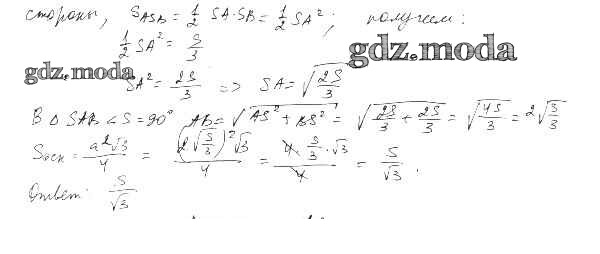 стороны, S_ASB = 1/2 SA·SB = 1/2 SA², получаем:
1/2 SA² = S/3
gdz.moda
gdz.moda
SA² = 2S/3 => SA = √(2S/3)
В Δ SAB ∠S = 90° AB = √(AS² + BS²) = √(2S/3 + 2S/3) = √(4S/3) = 2√(S/3)
Sосн = a²√3/4 = (2√(S/3))²√3/4 = 4·S/3·√3/4 = S/√3.
Ответ: S/√3